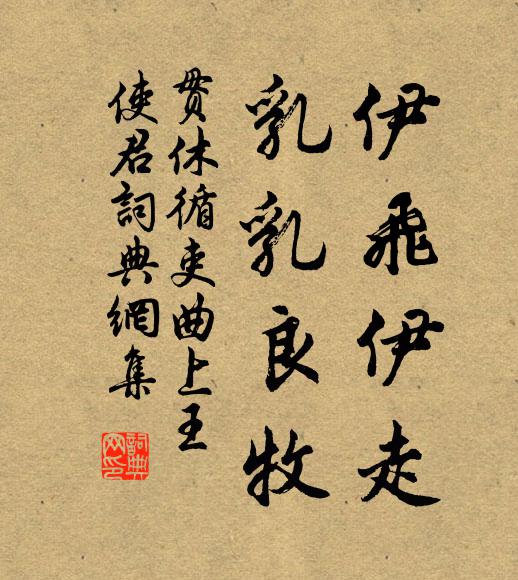 伊飛伊走
乳乳良牧
貫休循吏曲上王
使君詞典網集
詞典
网印